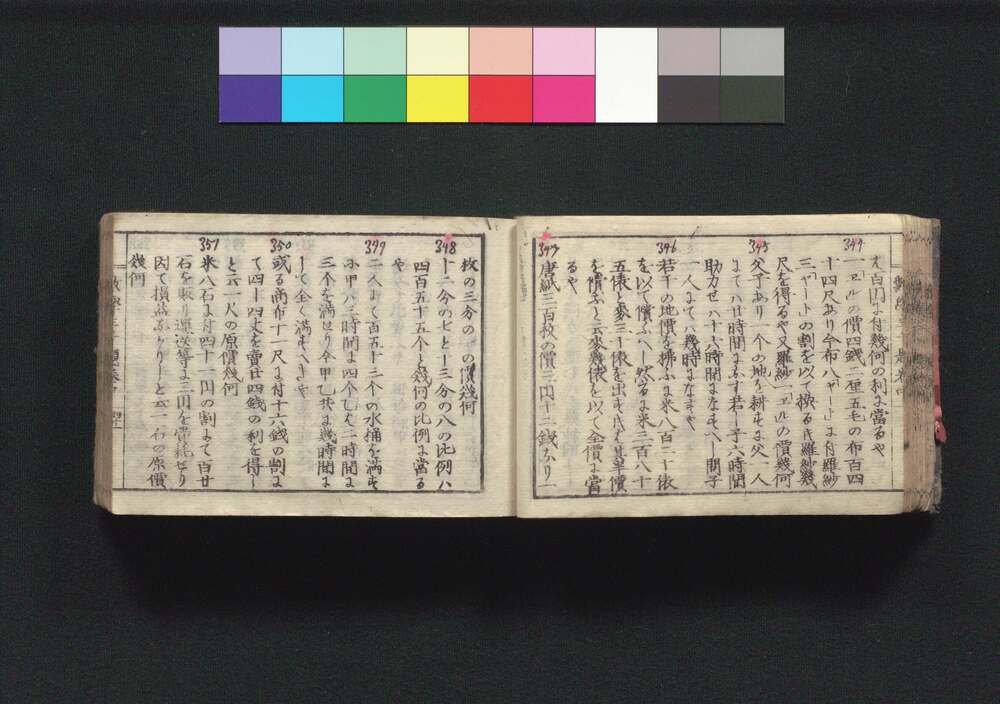 百円に付幾何の利に當るや
344
一ヱルの價四錢二厘五毛の布百四
十四尺あり今布八ヤードに付羅紗
三ヤードの割を以て換る時羅紗幾
尺を得るや又羅紗一ヱルの價幾何
345
父子あり一个の地を耕すに父一人
にてハ廿時間になす若し子六時間
助力せハ十六時間になすへし問子
一人にてハ幾時になすや
346
若干の地價を拂ふに米八百二十俵
を以て償ふへし然るに米三百八十
五俵と麥三十俵を出す時は其單價
を償ふと云麥幾俵を以て全價に當
るや
347
唐紙三百枚の價三円十二錢なり一
枚の三分の一の價幾何
348
十二分の七と十三分の八の比例ハ
四百五十五个と幾何の比例に當る
や
349
二人にて百五十三个の水桶を満す
に甲ハ三時間に四个乙は二時間に
三个を満せり今甲乙共に幾時間に
して全く満すへきや
350
或る商布十一尺に付十六錢の割に
て四十四丈を賣廿四錢の利を得し
と云一尺の原價幾何
351
米八石に付四十一円の割にて百廿
石を販り運送等に三円を費耗せり
因て損益なかりしと云一石の原價
幾何